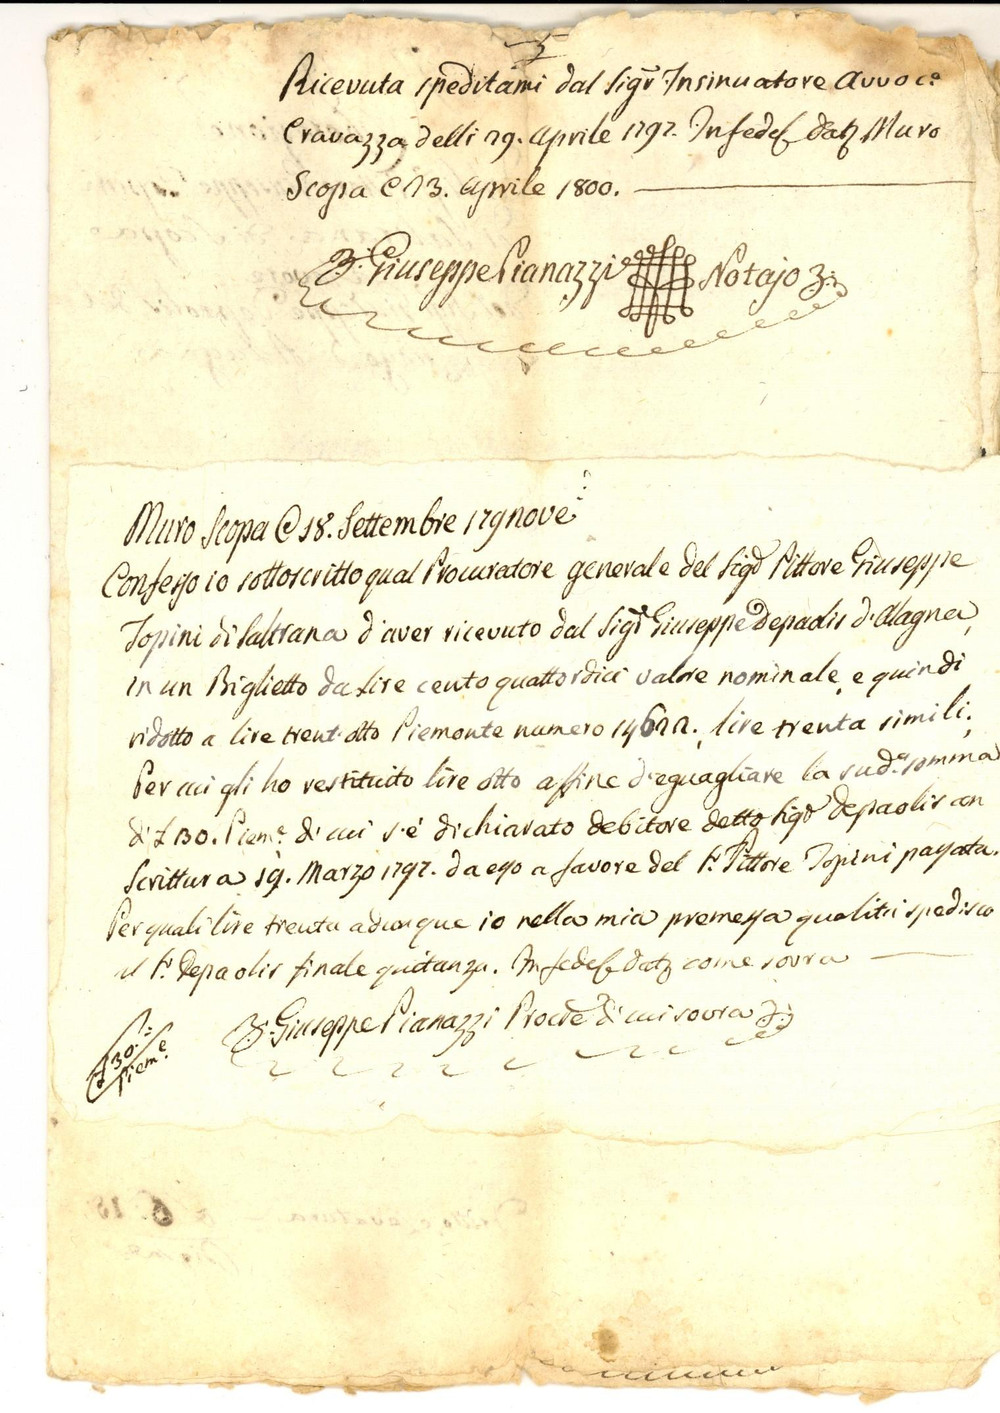 5
Ricevuta speditami dal Sigr Insinuatore Avvoc.o
Cravazza delli 29. Aprile 1797. In fede &c dat. Muro
Scopa @ 23. Aprile 1800.
Giuseppe Pianazzi Notajo
Muro Scopa @ 18. Settembre 179nove
Confesso io sottoscritto qual Procuratore generale del Sigr Pittore Giuseppe
Topini di Saltrana d'aver ricevuto dal Sigr Giuseppe Depaolis d'Alagna,
in un Biglietto da lire cento quattordici valore nominale, e quindi
ridotto a lire trent'otto Piemonte numero 14622., lire trenta simili;
Per cui gli ho restituito lire otto affine d'eguagliare la sud.a somma
di £ 30. Piem.e di cui s'è dichiarato debitore detto Sigr Depaolis con
Scrittura 19. Marzo 1797. da esso a favore del Sr. Pittore Topini passata.
Per quali lire trenta adunque io nella mia premessa qualità spedisco
al Sr. Depaolis finale quitanza. In fede &c dat. come sovra
Giuseppe Pianazzi Procre di cui sovra
£ 30.
Piem.e